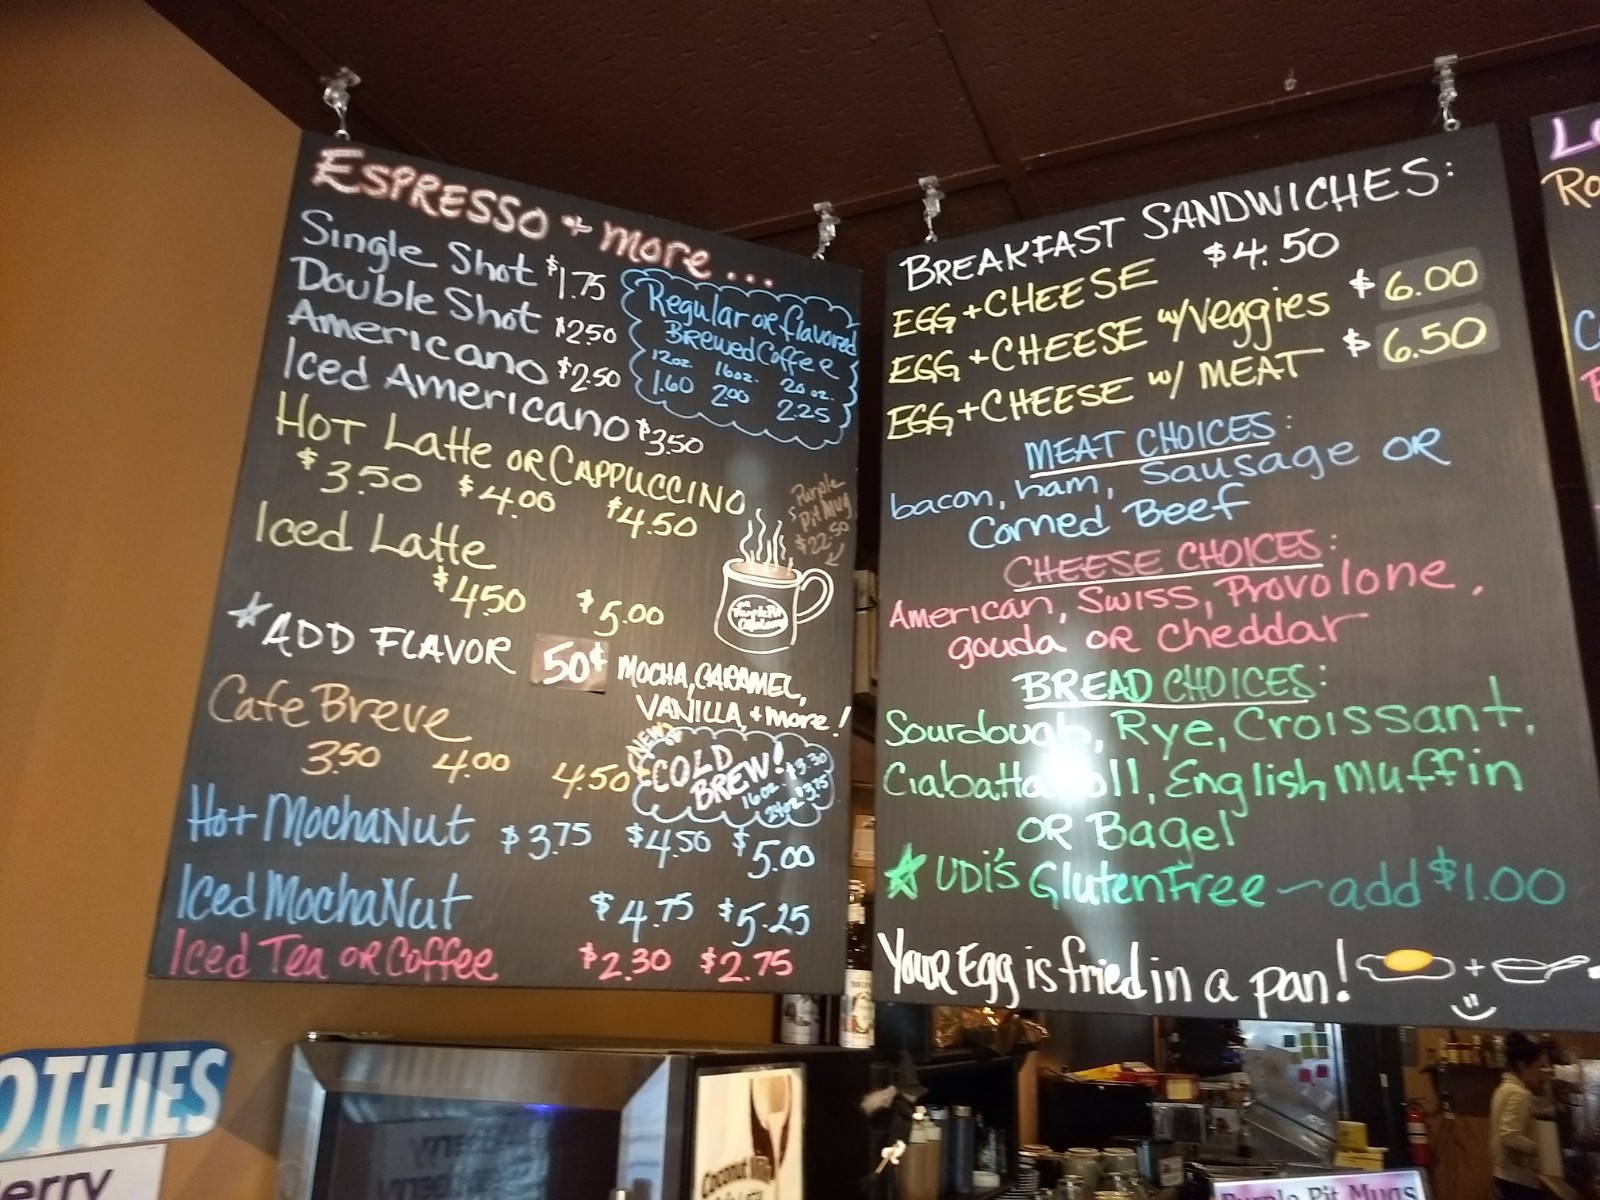 ESPRESSO + more...
Single Shot $1.75
Double Shot $2.50
Americano $2.50
Iced Americano $3.50
Regular or flavored
Brewed Coffee
12oz. 16oz. 20oz.
1.60 2.00 2.25
HOT Latte OR CAPPUCCINO
$3.50 $4.00 $4.50
Iced Latte
$4.50 $5.00
Purple
Pit Mug
$22.50
Purple Pit
ADD FLAVOR 50¢ MOCHA, CARAMEL,
VANILLA, + more!
Cafe Breve
3.50 4.00 4.50
NEW
COLD
BREW!
16oz. $3.30
24oz $3.75
Hot MochaNut $3.75 $4.50 $5.00
Iced MochaNut $4.75 $5.25
Iced Tea OR Coffee $2.30 $2.75
BREAKFAST SANDWICHES:
EGG + CHEESE $4.50
EGG + CHEESE w/Veggies $6.00
EGG + CHEESE w/ MEAT $6.50
MEAT CHOICES:
bacon, ham, Sausage OR
Corned Beef
CHEESE CHOICES:
American, Swiss, Provolone,
gouda OR cheddar
BREAD CHOICES:
Sourdough, Rye, Croissant,
Ciabatta Roll, English muffin
OR Bagel
UDI'S Gluten Free ~ add $1.00
Your Egg is fried in a pan!
+
Ro
OTHIES
erry
Coconut
Purple Pit Mugs